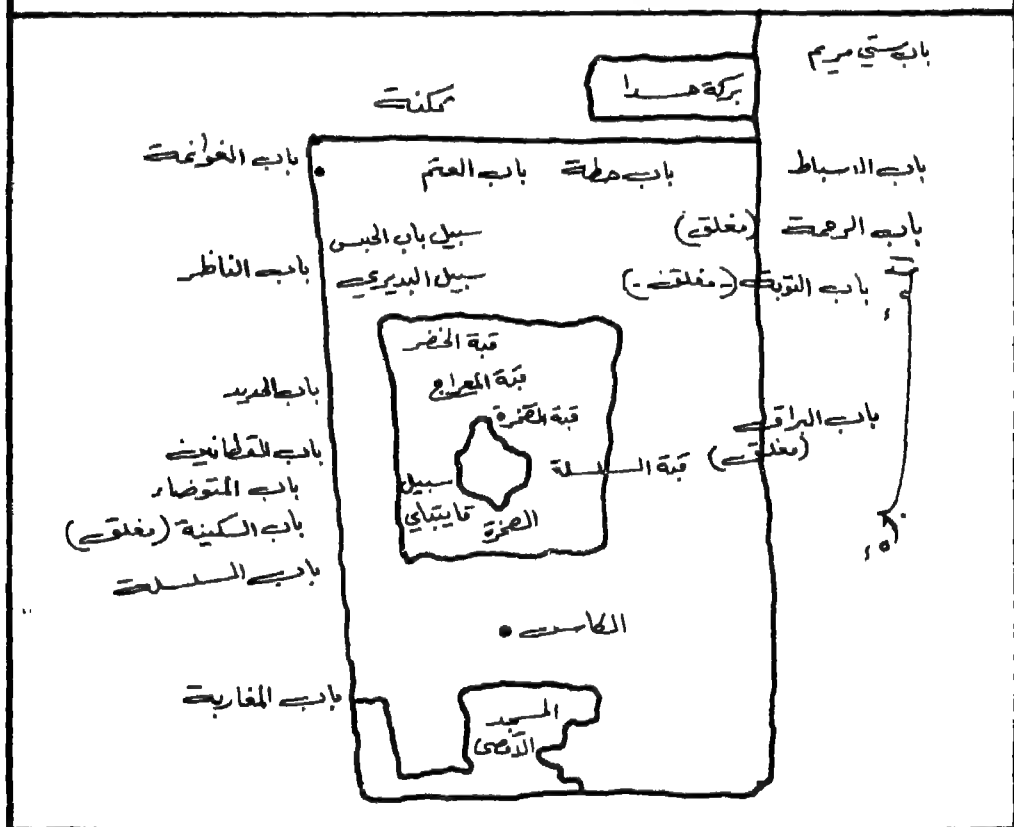 باب ستي مريم
بركة هسدا
ثكنة
باب الغوانمة
باب العتم
باب حطة
باب الاسباط
باب الرحمة (مغلق)
سبيل باب الحبس
باب الناظر
سبيل البديري
باب التوبة (- مغلق -)
قبة الخضر
قبة المعراج
باب الحديد
قبة الصخرة
باب البراق
(مغلق)
باب القطانين
قبة السلسلة
باب المتوضاء
سبيل
قايتباي
الصخرة
باب السكينة (مغلق)
باب السلسلة
الكاس
باب المغاربة
المسجد
الاقصى